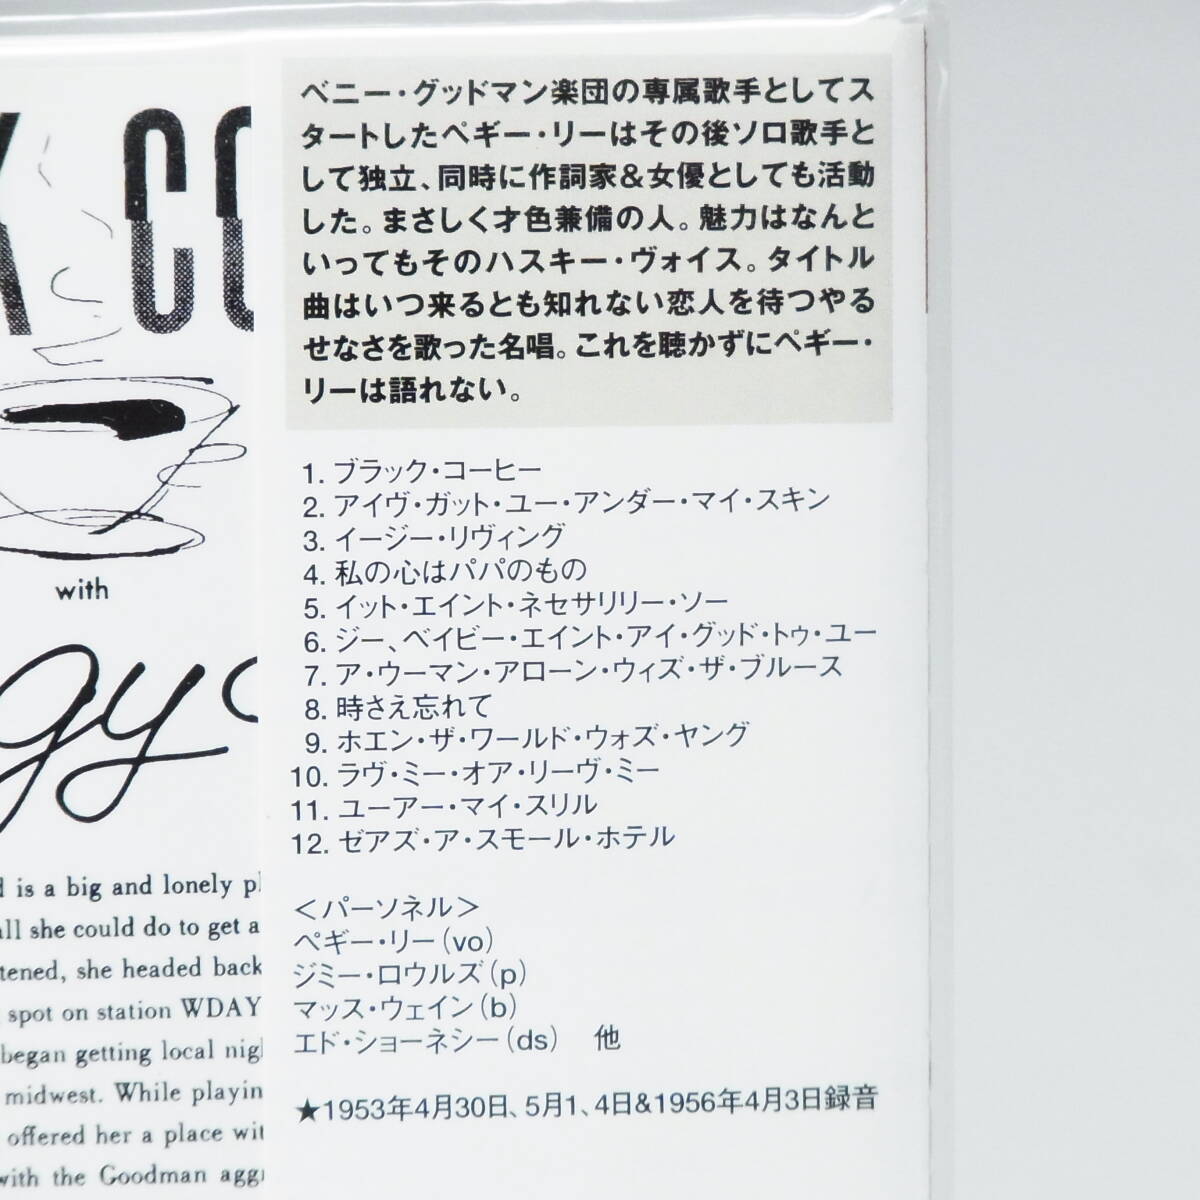 ベニー・グッドマン楽団の専属歌手としてス
タートしたペギー・リーはその後ソロ歌手と
して独立、同時に作詞家&女優としても活動
した。まさしく才色兼備の人。魅力はなんと
いってもそのハスキー・ヴォイス。タイトル
曲はいつ来るとも知れない恋人を待つやる
せなさを歌った名唱。これを聴かずにペギー・
リーは語れない。
1. ブラック・コーヒー
2. アイヴ・ガット・ユー・アンダー・マイ・スキン
3. イージー・リヴィング
4. 私の心はパパのもの
5. イット・エイント・ネセサリリー・ソー
6. ジー、ベイビー・エイント・アイ・グッド・トゥ・ユー
7. ア・ウーマン・アローン・ウィズ・ザ・ブルース
8. 時さえ忘れて
9. ホエン・ザ・ワールド・ウォズ・ヤング
10. ラヴ・ミー・オア・リーヴ・ミー
11. ユーアー・マイ・スリル
12. ゼアズ・ア・スモール・ホテル
＜パーソネル＞
ペギー・リー(vo)
ジミー・ロウルズ(p)
マックス・ウェイン(b)
エド・ショーネシー(ds) 他
★1953年4月30日、5月1、4日&1956年4月3日録音
K CO
with
gy
is a big and lonely
all she could do to get a
tened, she headed back
spot on station WDAY
began getting local
midwest. While
offered her a place
with the Goodman